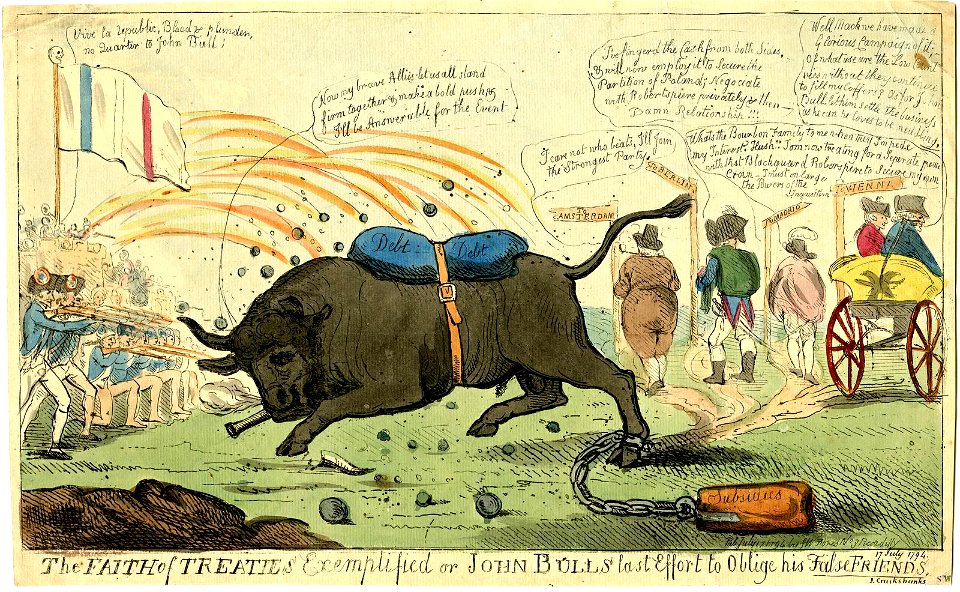 Vive la republic, Blood & plunder,
no Quarter to John Bull!
Now my brave Allies let us all stand
firm together & make a bold push &
I'll be Answerable for the Event
I've finger'd the Cash from both Sides,
& will now employ it to Secure the
Partition of Poland; Negociate
with Robertspiere privately & then
Damn Relationship !!!
Well Mack we have made a
Glorious Campaign of it
of what use are the Low
without they continue
to fill my Coffers, as for John
Bull let him settle the business
as he can he loves to be meddling,
I care not who beats, I'll Join
the Strongest Party.
Whats the Bourbon Family to me when they Impede
my Interest, Hush " I am now treating for a Separate peace
with that Blackguard Roberspiere to Secure my own
Crown
the Powers of the
To BERLIN
To
AMSTERDAM
To MADRID
To VIENNA
Debt
Debt
Subsidies
17 July 1794.
The FAITH of TREATIES Exemplified or JOHN BULLS last Effort to Oblige his False FRIENDS,
I. Cruikshanks
SW